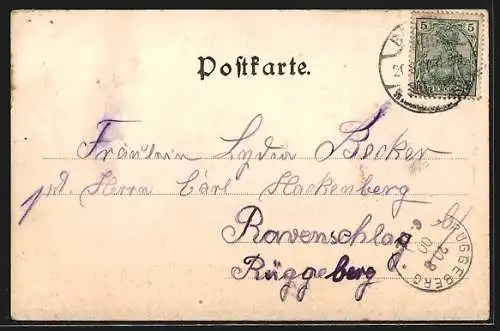 5 5
Postkarte.
Fräulein Lydia Becker
p. Adr. Herrn Carl Hackenberg
Ravenschlag
Rüggeberg
RÜGGEBERG
20 8
00